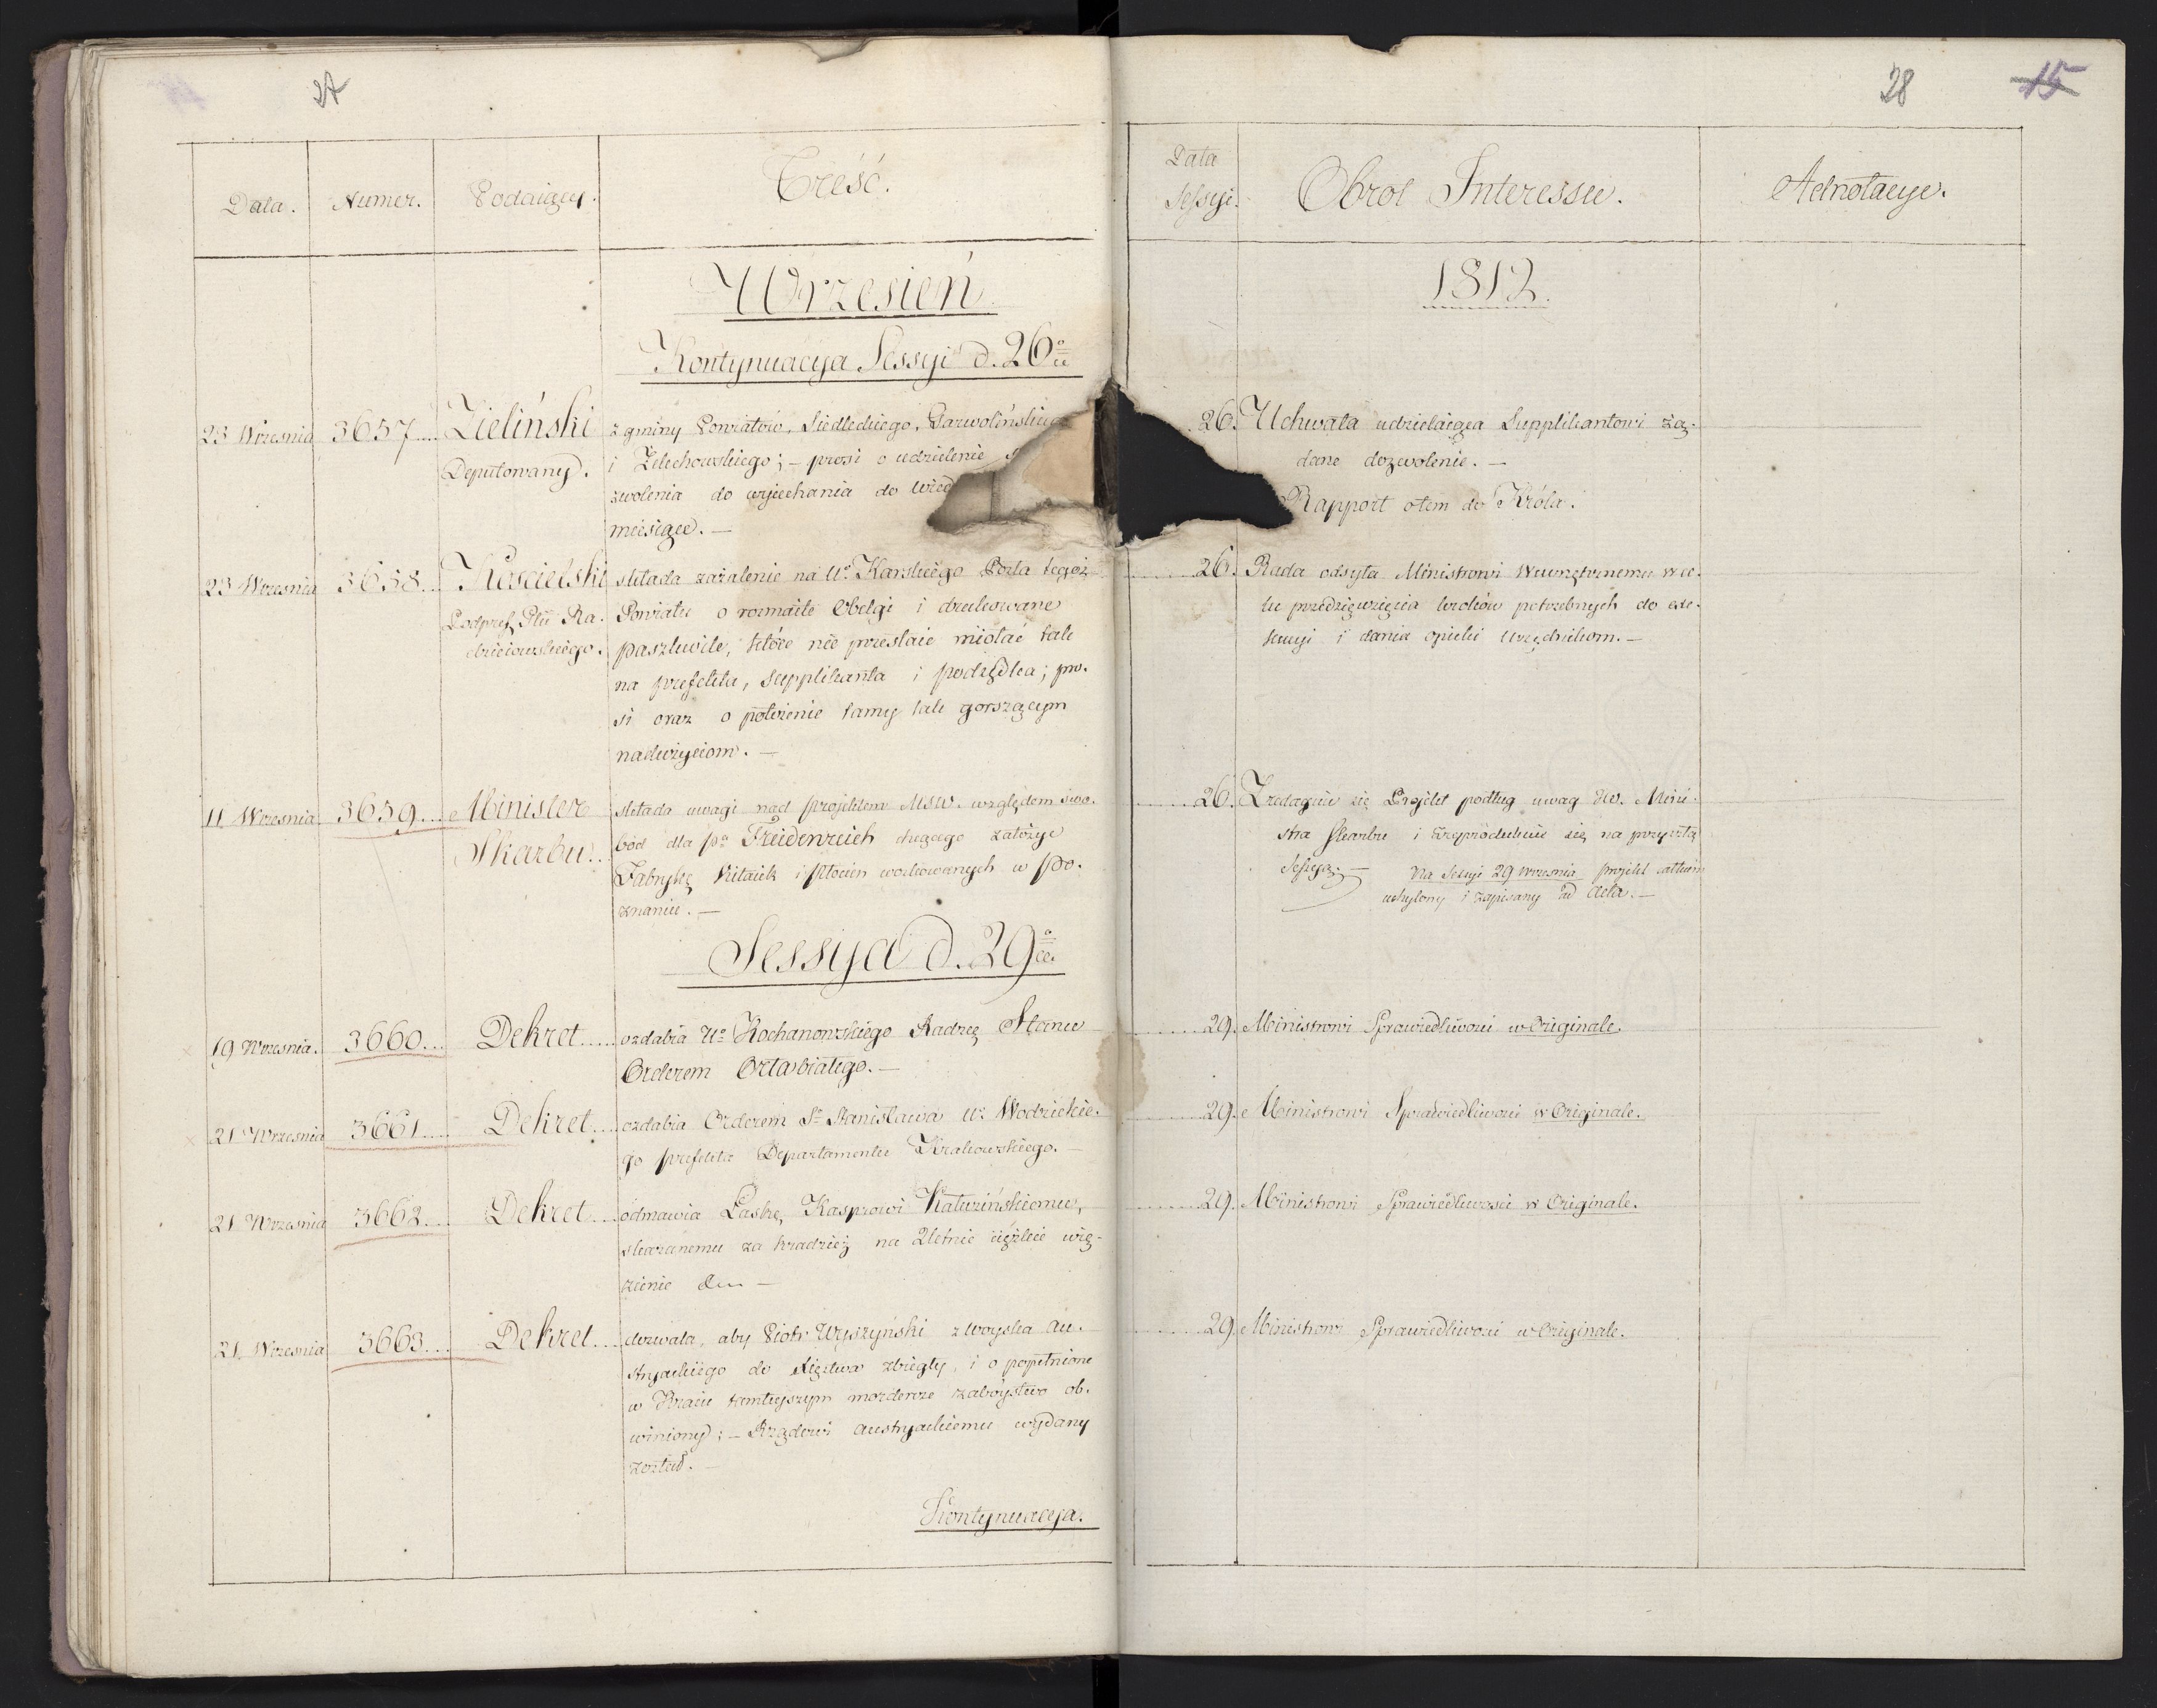 27
Data.
Numer.
Podaiący.
Treść.
Wrzesień
Kontynuacya Sessyi d. 26o
23 Wrzesnia 3657.... Zieliński z gminy Powiatów, Siedleckiego, Garwolińskiego
Deputowany. i Zelechowskiego; – prosi o udzielenie
zwolenia do wyiechania do
miesiące. –
23 Wrzesnia 3658... Kościelski składa zażalenie na Uo Karskiego Posła tegoż
Podpref. Pttu Ra- Powiatu o rozmaite Obelgi i drukowane
dzieiowskiego. paszkwile, które nie przestaie miotać tak
na prefekta, supplikanta i podsędka; pro-
si oraz o położenie tamy tak gorszącym
nadużyciom. –
11 Wrzesnia 3659... Minister składa uwagi nad projektem MSW. względem swo-
Skarbu.. bód dla pa Freidenreich chcącego założyć
Fabrykę Kitaiek i płócien woskowanych w Po-
znaniu. –
Sessya d. 29o
19 Wrzesnia. 3660... Dekret.... ozdabia Uo Kochanowskiego Radzcę Stanu
Orderem Orła białego. –
21 Wrzesnia 3661.... Dekret.... ozdabia Orderem So Stanisława Uo Wodzickie-
go prefekta Departamentu Krakowskiego. –
21 Wrzesnia 3662.... Dekret.... odmawia Łaskę, Kasprowi Kałuzińskiemu,
skazanemu za kradzież na 2letnie ciężkie wię-
zienie –
21 Wrzesnia 3663.... Dekret.... dozwala, aby Piotr Wyszyński z Woyska Au-
stryackiego do Xięstwa zbiegły, i o popełnione
w Kraiu tamtejszym mordercze zaboystwo ob-
winiony; – Rządowi austryackiemu wydany
został. –
Kontynuacya.
28
15
Data
Sessyi.
Obrot Interessu.
Adnotacye.
1812.
26. Uchwała udzielaiąca Supplikantowi żą-
dane dozwolenie. –
Rapport o tem do Króla.
26. Rada odsyła Ministrowi Wewnętrznemu w ce-
lu przedsięwzięcia kroków potrzebnych do exe-
kucyi i dania opieki Urzędnikom. –
26. Zredaguie się Projekt podług uwag JW. Mini-
stra Skarbu i zreprodukuie się na przyszłą
Sessyą. – Na Sessyi 29 Wrzesnia projekt
uchylony i zapisany ad Acta. –
29. Ministrowi Sprawiedliwosci w Originale.
29. Ministrowi Sprawiedliwosci w Originale.
29. Ministrowi Sprawiedliwosci w Originale.
29. Ministrowi Sprawiedliwosci w Originale.